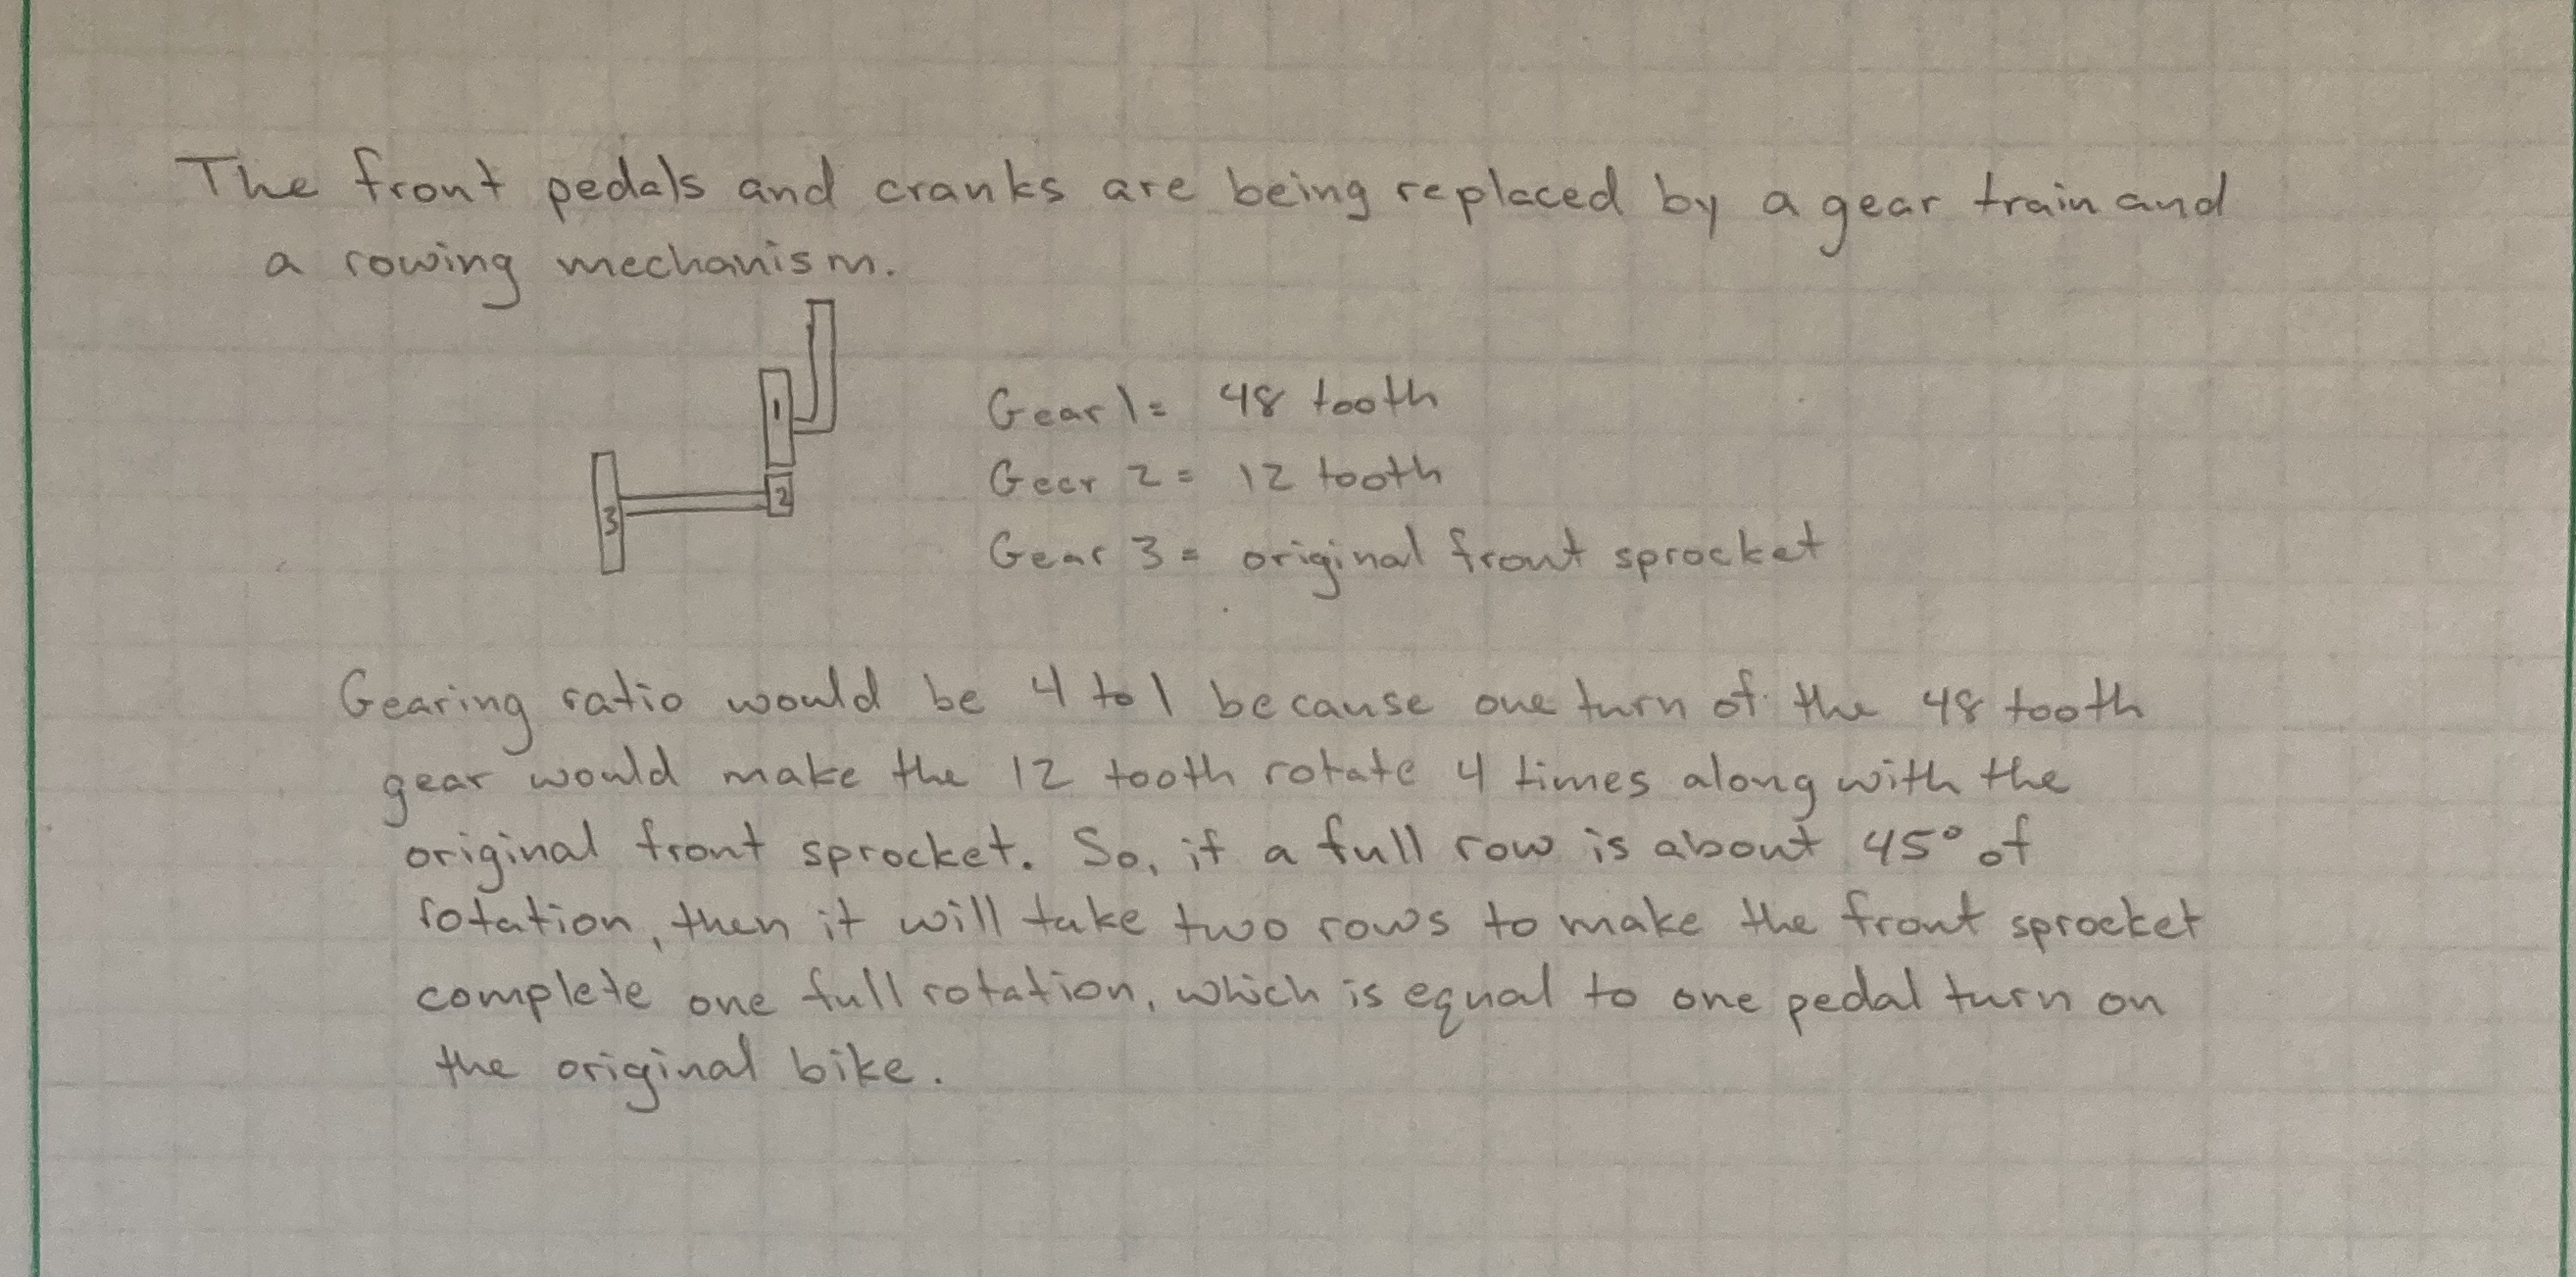 The front pedals and cranks are being replaced by a gear train and
a rowing mechanism.
1
Gear 1= 48 tooth
2
Gear 2 = 12 tooth
3
Gear 3 = original front sprocket
Gearing ratio would be 4 to 1 because one turn of the 48 tooth
gear would make the 12 tooth rotate 4 times along with the
original front sprocket. So, if a full row is about 45° of
rotation, then it will take two rows to make the front sprocket
complete one full rotation, which is equal to one pedal turn on
the original bike.